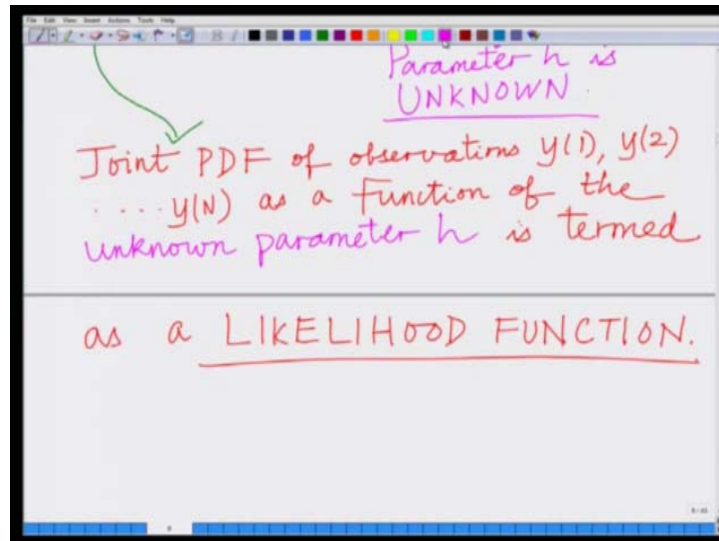 File Edit View Insert Actions Tools Help
Parameter h is
UNKNOWN.
Joint PDF of observations y(1), y(2)
.... y(N) as a function of the
unknown parameter h is termed
as a LIKELIHOOD FUNCTION.